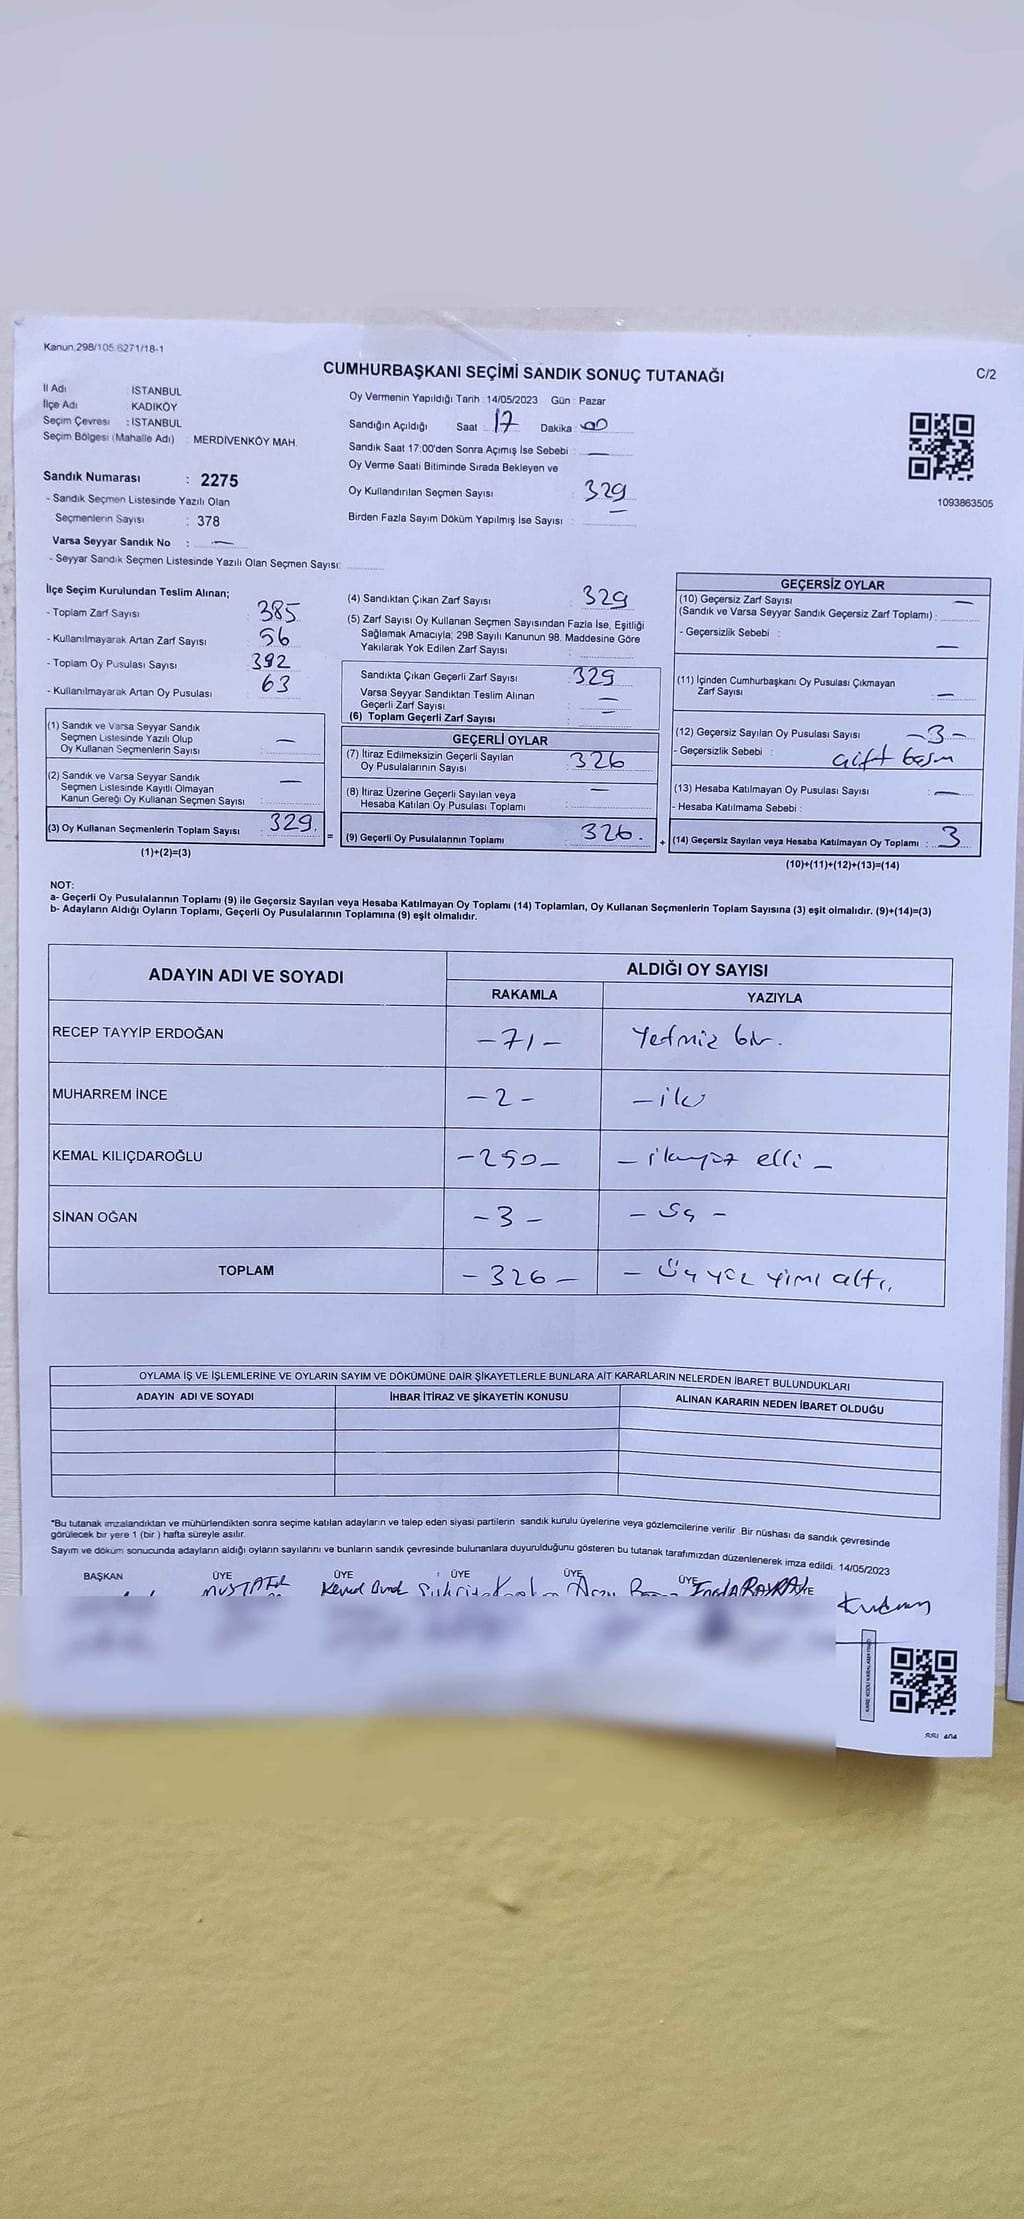 Kanun 298/105 6271/18-1
CUMHURBAŞKANI SEÇİMİ SANDIK SONUÇ TUTANAĞI
C/2
İl Adı : İSTANBUL
İlçe Adı : KADIKÖY
Seçim Çevresi : İSTANBUL
Seçim Bölgesi (Mahalle Adı) : MERDİVENKÖY MAH.
Oy Vermenin Yapıldığı Tarih : 14/05/2023 Gün : Pazar
Sandığın Açıldığı Saat : 17 Dakika : 00
Sandık Saat 17:00'den Sonra Açımış İse Sebebi : —
Oy Verme Saati Bitiminde Sırada Bekleyen ve
Oy Kullandırılan Seçmen Sayısı : 329
Birden Fazla Sayım Döküm Yapılmış İse Sayısı :
1093863505
Sandık Numarası : 2275
- Sandık Seçmen Listesinde Yazılı Olan
Seçmenlerin Sayısı : 378
Varsa Seyyar Sandık No : —
- Seyyar Sandık Seçmen Listesinde Yazılı Olan Seçmen Sayısı:
İlçe Seçim Kurulundan Teslim Alınan;
- Toplam Zarf Sayısı 385
- Kullanılmayarak Artan Zarf Sayısı 56
- Toplam Oy Pusulası Sayısı 392
- Kullanılmayarak Artan Oy Pusulası 63
(1) Sandık ve Varsa Seyyar Sandık
Seçmen Listesinde Yazılı Olup
Oy Kullanan Seçmenlerin Sayısı : —
(2) Sandık ve Varsa Seyyar Sandık
Seçmen Listesinde Kayıtlı Olmayan
Kanun Gereği Oy Kullanan Seçmen Sayısı : —
(3) Oy Kullanan Seçmenlerin Toplam Sayısı : 329.
(1)+(2)=(3)
=
(4) Sandıktan Çıkan Zarf Sayısı : 329
(5) Zarf Sayısı Oy Kullanan Seçmen Sayısından Fazla İse, Eşitliği
Sağlamak Amacıyla; 298 Sayılı Kanunun 98. Maddesine Göre
Yakılarak Yok Edilen Zarf Sayısı :
Sandıkta Çıkan Geçerli Zarf Sayısı : 329
Varsa Seyyar Sandıktan Teslim Alınan
Geçerli Zarf Sayısı : —
(6) Toplam Geçerli Zarf Sayısı : —
GEÇERLİ OYLAR
(7) İtiraz Edilmeksizin Geçerli Sayılan
Oy Pusulalarının Sayısı : 326
(8) İtiraz Üzerine Geçerli Sayılan veya
Hesaba Katılan Oy Pusulası Toplamı : —
(9) Geçerli Oy Pusulalarının Toplamı : 326.
+
GEÇERSİZ OYLAR
(10) Geçersiz Zarf Sayısı —
(Sandık ve Varsa Seyyar Sandık Geçersiz Zarf Toplamı) :
- Geçersizlik Sebebi : —
(11) İçinden Cumhurbaşkanı Oy Pusulası Çıkmayan
Zarf Sayısı : —
(12) Geçersiz Sayılan Oy Pusulası Sayısı : -3-
- Geçersizlik Sebebi : çift basım
(13) Hesaba Katılmayan Oy Pusulası Sayısı : —
- Hesaba Katılmama Sebebi :
(14) Geçersiz Sayılan veya Hesaba Katılmayan Oy Toplamı : 3
(10)+(11)+(12)+(13)=(14)
NOT:
a- Geçerli Oy Pusulalarının Toplamı (9) ile Geçersiz Sayılan veya Hesaba Katılmayan Oy Toplamı (14) Toplamları, Oy Kullanan Seçmenlerin Toplam Sayısına (3) eşit olmalıdır. (9)+(14)=(3)
b- Adayların Aldığı Oyların Toplamı, Geçerli Oy Pusulalarının Toplamına (9) eşit olmalıdır.
ADAYIN ADI VE SOYADI ALDIĞI OY SAYISI
RAKAMLA YAZIYLA
RECEP TAYYİP ERDOĞAN -71- Yetmiş bir.
MUHARREM İNCE -2- -iki
KEMAL KILIÇDAROĞLU -250- -ikiyüz elli-
SİNAN OĞAN -3- -üç-
TOPLAM -326- -Üçyüz yirmi altı.
OYLAMA İŞ VE İŞLEMLERİNE VE OYLARIN SAYIM VE DÖKÜMÜNE DAİR ŞİKAYETLERLE BUNLARA AİT KARARLARIN NELERDEN İBARET BULUNDUKLARI
ADAYIN ADI VE SOYADI İHBAR İTİRAZ VE ŞİKAYETİN KONUSU ALINAN KARARIN NEDEN İBARET OLDUĞU
*Bu tutanak imzalandıktan ve mühürlendikten sonra seçime katılan adayların ve talep eden siyasi partilerin sandık kurulu üyelerine veya gözlemcilerine verilir. Bir nüshası da sandık çevresinde
görülecek bir yere 1 (bir) hafta süreyle asılır.
Sayım ve döküm sonucunda adayların aldığı oyların sayılarını ve bunların sandık çevresinde bulunanlara duyurulduğunu gösteren bu tutanak tarafımızdan düzenlenerek imza edildi. 14/05/2023
BAŞKAN ÜYE ÜYE ÜYE ÜYE ÜYE
MUSTAFA Kemal